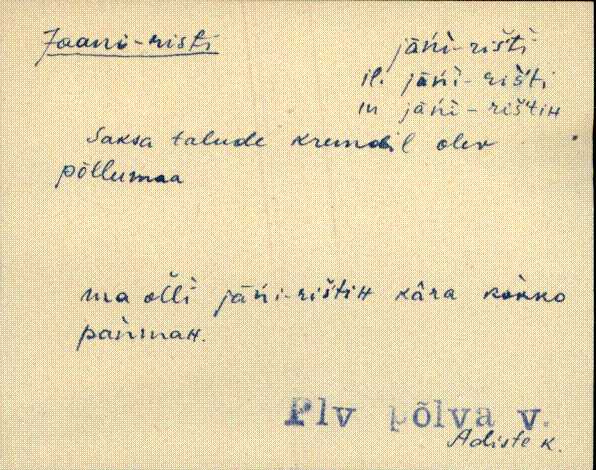 Jaani-risti
jāńì-rišti
il. jāńì-rišti
in jāńì-rištiн
Saksa talude krundil olev
põllumaa
ma olli jāńi-rištiн kâra kokko
pańmaн.
Plv põlva v.
Adiste k.